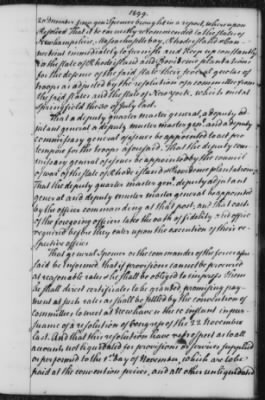 1299.
Resolved That it be earnestly recommended to the states of
Newhampshire, Massachusetts bay, Rhodeisland & Con-
necticut immediately to furnish and keep up constantly
in the state of Rhodeisland and Providence plantations
for the defence of the said state their several quotas of
troops as adjusted by the resolution of a committee from
the said states and the state of New York, which met at
Springfield the 30 of July last.
That a deputy quarter master general, a deputy ad-
jutant general a deputy muster master genl. and a deputy
commissary general of issues be appointed to act pro
tempore for the troops aforesaid. That the deputy com-
missary general of issues be appointed by the council
of war of the state of Rhode island & Providence plantations,
That the deputy quarter master genl. deputy adjutant
general and deputy muster master general be appointed
by the officer commanding at that post, and that each
of the foregoing officers take the oath of fidelity & of office
required before they enter upon the execution of their re-
spective offices
That general Spencer or the commander of the forces afore-
said be informed that if provisions cannot be procured
at reasonable rates & he shall be obliged to impress them
he shall direct certificates to be granted promising pay-
ment at such rates as shall be settled by the convention of
committees to meet at Newhaven in Connecticut in pur-
suance of a resolution of Congress of the 22 November
last. And that this resolution have respect as to all
accounts not liquidated for provisions or services supplied
or performed to the 1st. day of November, which are to be
paid at the convention prices, and all other unliquidated